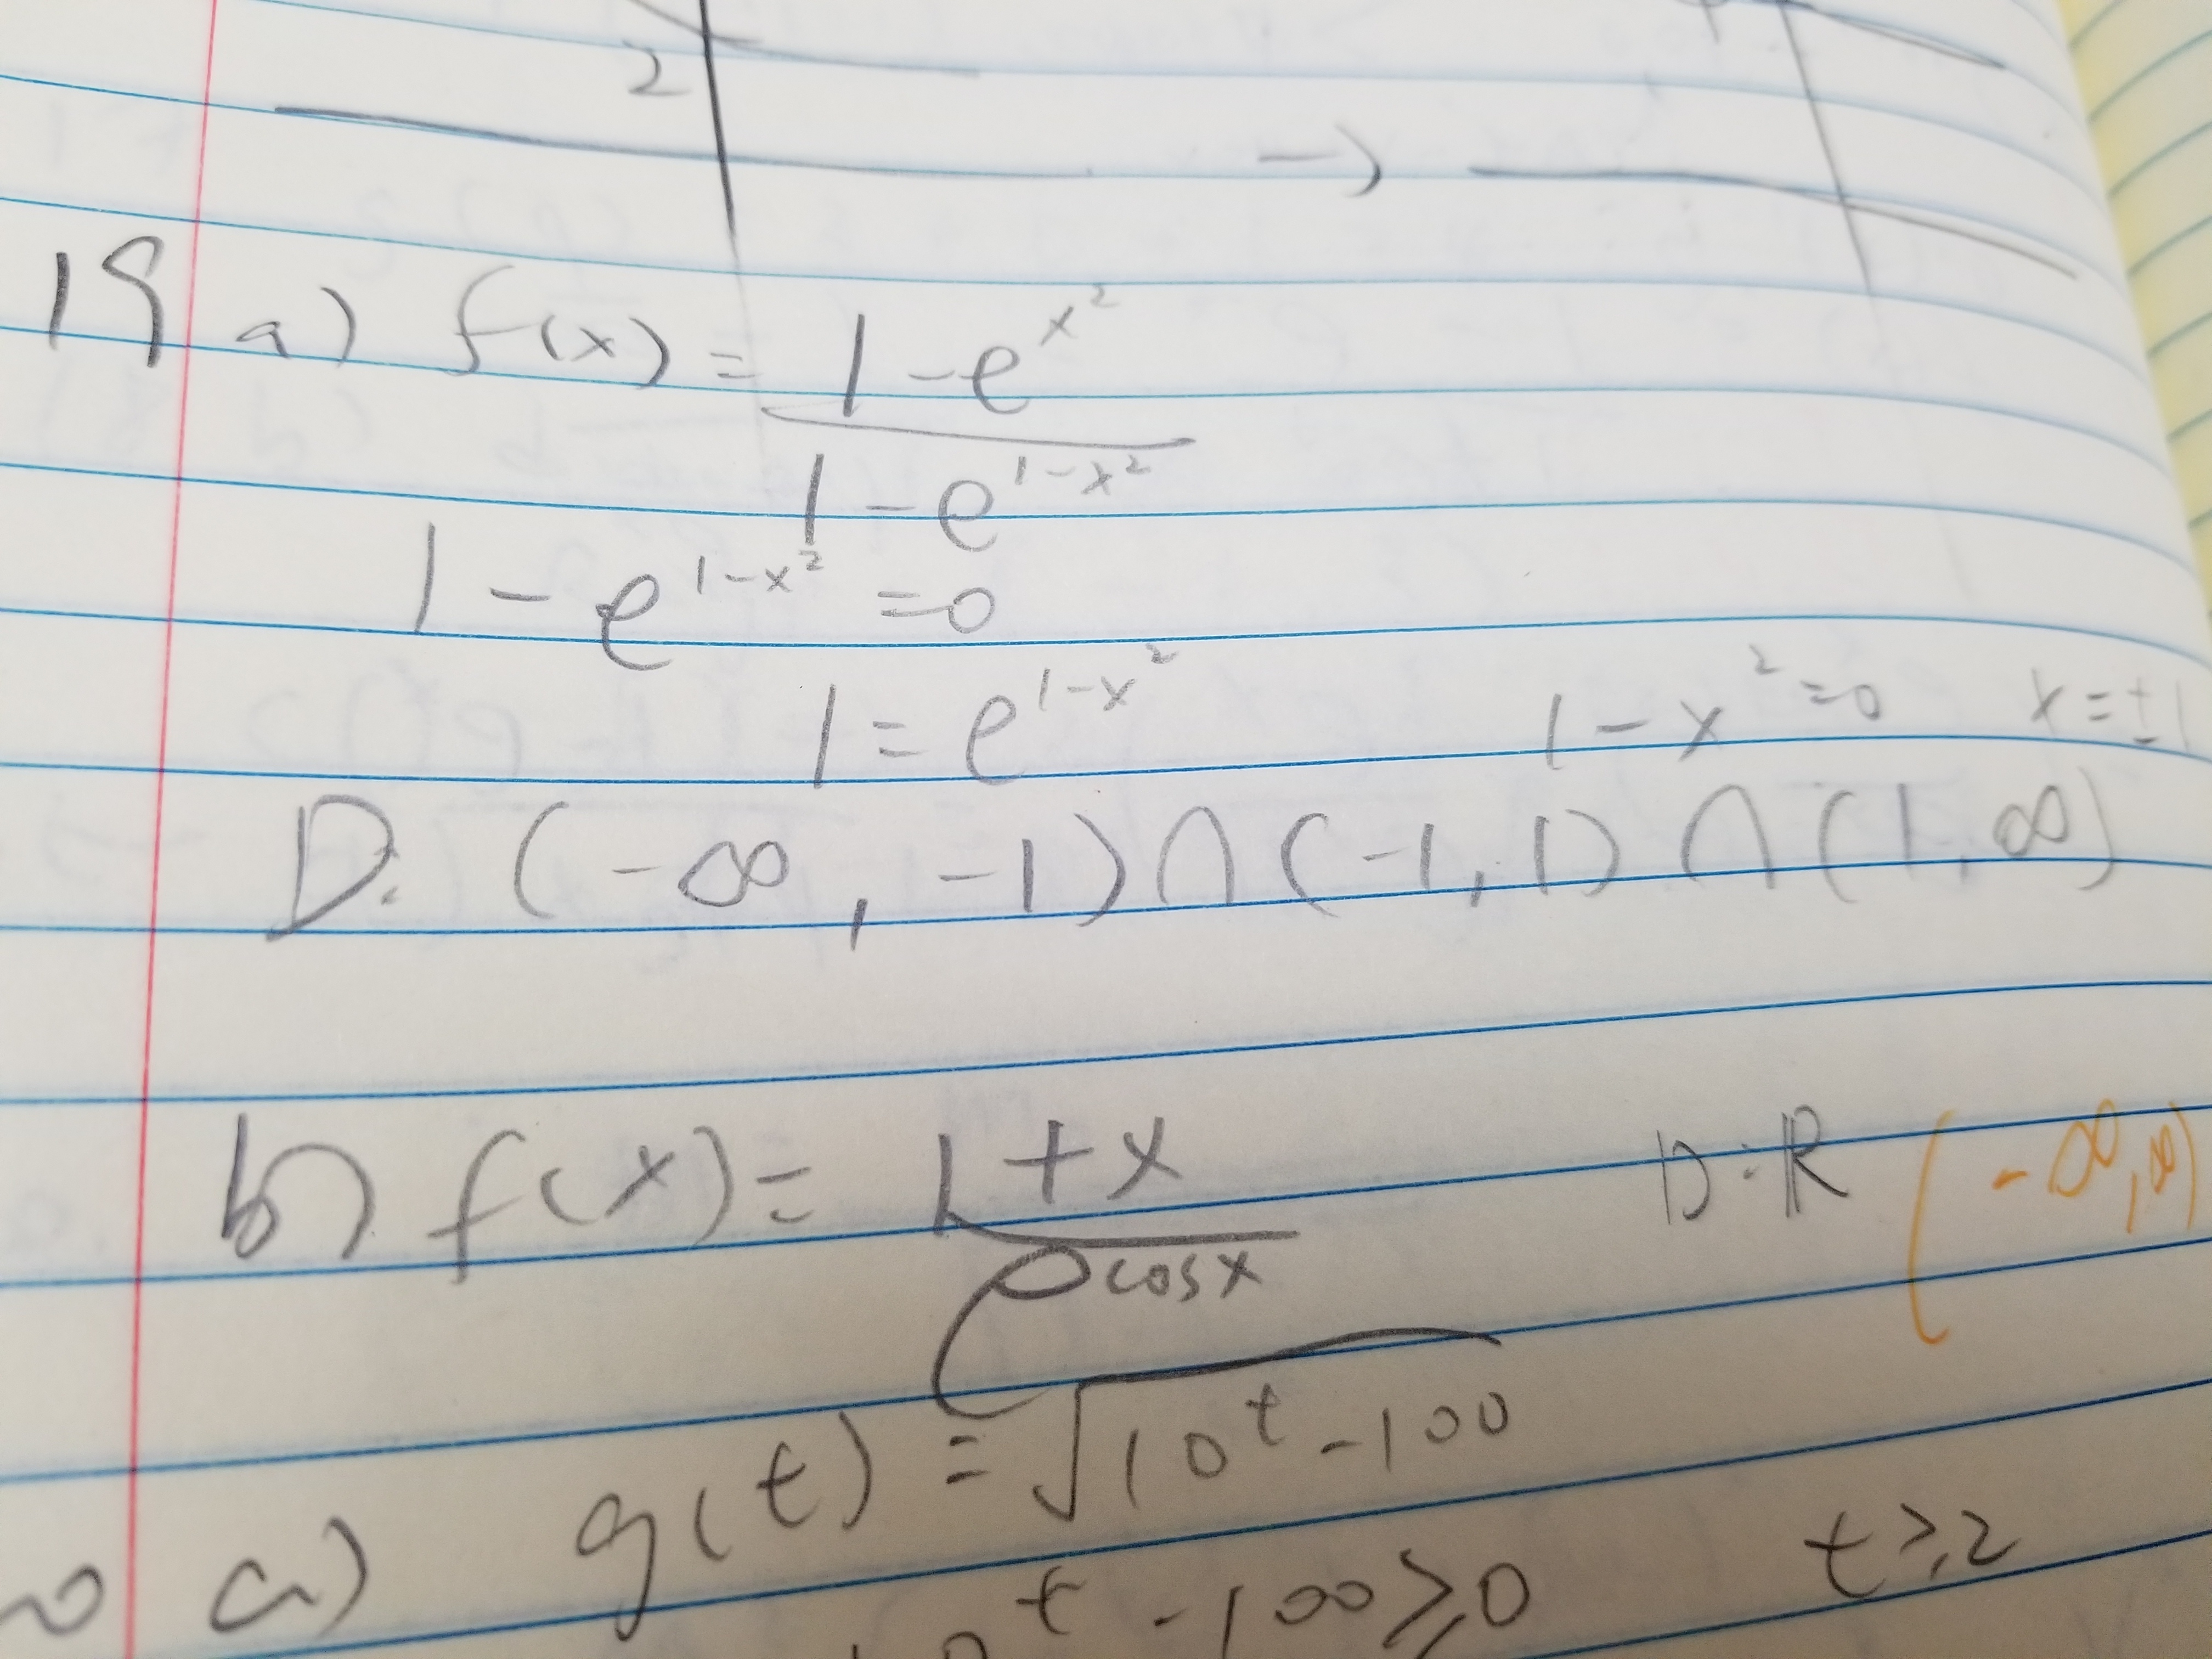 2 -)
19 a) f(x) = 1-e^x^2
1-e^1-x^2
1-e^1-x^2 = 0
1 = e^1-x^2 1-x^2=0 x=±1
D: (-∞, -1) ∩ (-1, 1) ∩ (1, ∞)
b) f(x) = 1+x D: ℝ (-∞, ∞)
e^cosx
a) g(t) = √10^t - 100
10^t - 100 ≥ 0 t≥2